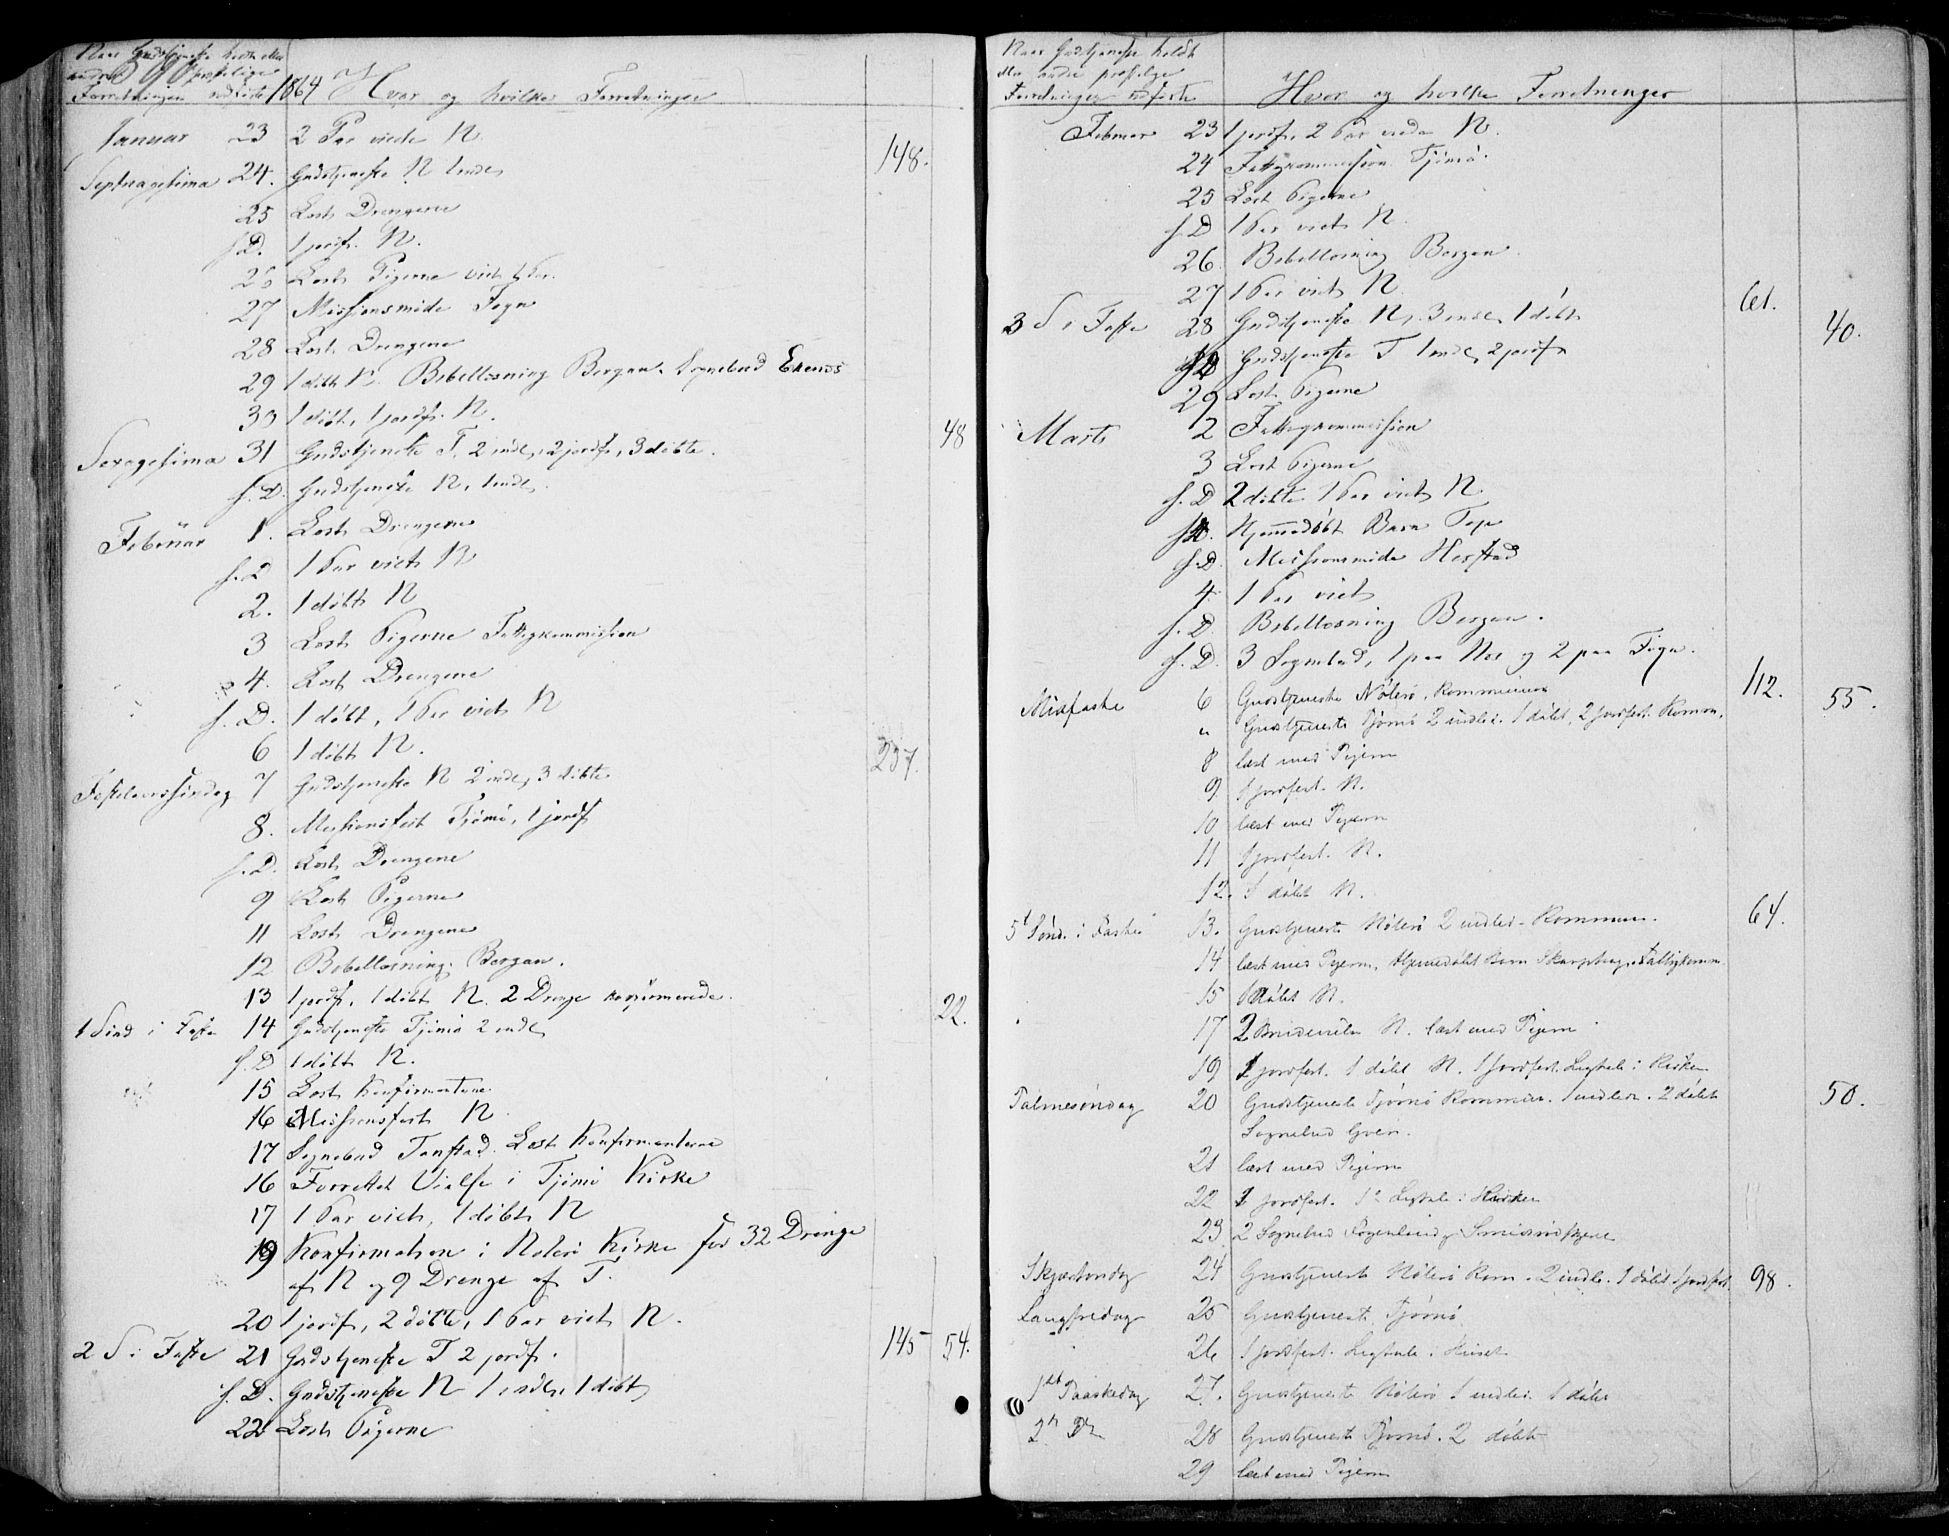 Naar Gudstjeneste holdt eller
andre
Forretninger udførte 1864 Hvor og hvilke Forretninger
Januar 23 2 Par viede N.
148.
Septuagesima 24. Gudstjeneste N 1 indl.
25 Læst Drengene
s. D. 1 jordf. N.
26 Læst Pigerne viet 1 Par.
27 Missionsmøde
28 Læst Drengene
29 1 døbt N. Bibellæsning Bergan. Sognebud Ekenæs
30 1 døbt, 1 jordf. N.
Sexagesima 31 Gudstjeneste T. 2 indl., 2 jordf., 3 døbte. 48
s. D. Gudstjeneste N. 1 indl.
Februar 1. Læst Drengene
s. D 1 Par viet N
2. 1 døbt N
3 Læst Pigerne Fattigkommission
4. Læst Drengene
s. D. 1 døbt, 1 Par viet N
6 1 døbt N. 237.
Fastelavnssøndag 7 Gudstjeneste N 2 indl., 3 døbte
8. Missionsfest Tjømø, 1 jordf
s. D. Læst Drengene
9 Læst Pigerne
11 Læst Drengene
12 Bibellæsning Bergan.
13 1 jordf., 1 døbt N. 2 Drenge konfirmerede. 22.
1 Sønd i Faste 14 Gudstjeneste Tjømø 2 indl.
s. D 1 døbt N.
15 Læst Konfirmanterne.
16 Missionsfest N
17 Sognebud Læst Konfirmanterne
16 Forrettet Vielse i Tjømø Kirke
17 1 Par viet, 1 døbt N
19 Konfirmation i Nøterø Kirke for 32 Drenge
af N og 9 Drenge af T.
20 1 jordf, 2 døbte, 1 Par viet N.
2 S i Faste 21 Gudstjeneste T 2 jordf. 145 54.
s. D. Gudstjeneste N 1 indl. 1 døbt
22 Læst Pigerne
Naar Gudstjeneste holdt
eller andre
Forretninger udførte Hvor og hvilke Forretninger
Februar 23 1 jordf. 2 Par viede N.
24 Fattigkommission Tjømø.
25 Læst Pigerne
s. D 1 Par viet N.
26. Bibellæsning Bergan.
27 1 Par viet N.
3 S i Faste 28 Gudstjeneste N, 3 indl., 1 døbt 61. 40.
s. D Gudstjeneste T 1 indl, 2 jordf
29 Læst Pigerne
Marts 2 Fattigkommission
3 Læst Pigerne
s. D 2 døbte 1 Par viet N
s. D. Hjemmedøbt Barn
s. D. Missionsmøde
4 1 Par viet
s. D. Bibellæsning Bergan.
s. D. 3 Sognebud, 1 paa Nøt og 2 paa
112.
Midfaste 6 Gudstjeneste Nøterø, Kommunion 55.
" Gudstjeneste Tjømø 2 indled. 1 døbt, 2 jordfest. Komm.
8 læst med Pigerne
9 1 jordfest. N.
10 læst med Pigerne
11 1 jordfest. N.
12. 1 døbt N.
5t Sønd. i Faste 13. Gudstjeneste Nøterø 2 indled. Kommun. 64.
14 læst med Pigerne, Hjemmedøbt Barn Fattigkomm.
15 1 døbt N.
17 2 N. læst med Pigerne
19 1 jordfest. 1 døbt N. 1 jordfest. Ligtale i Kirken
Palmesøndag 20 Gudstjeneste Tjømø Kommun. 1 indled. 2 døbt 50.
Sognebud
21 læst med Pigerne
22 1 jordfest. Ligtale i Kirken
23 2 Sognebud
Skjærtorsdag 24 Gudstjeneste Nøterø Kom. 2 indle. 1 døbt 1 jordfest. 98.
Langfredag 25 Gudstjeneste Tjømø
26 1 jordfest. Ligtale i Huset
1ste Paaskedag 27. Gudstjeneste Nøterø 1 indled. 1 døbt
2n Do 28 Gudstjeneste Tjømø. 2 døbt
29 læst med Pigerne